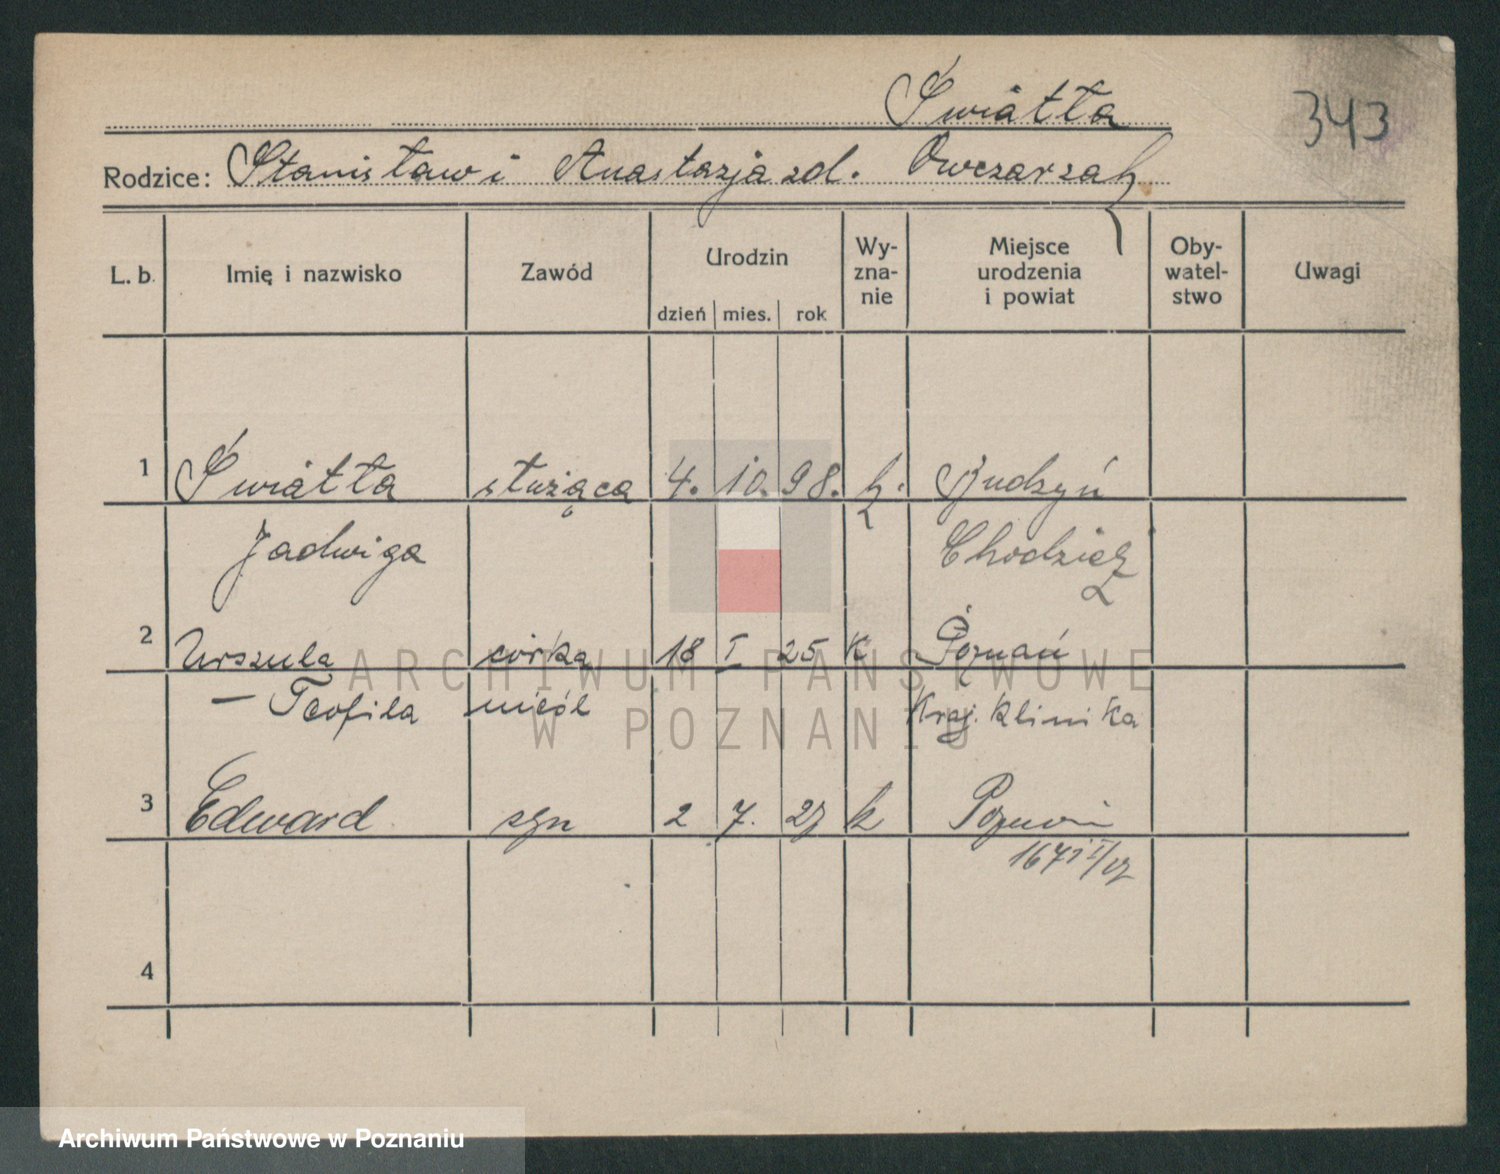 Świátła
343
Rodzice: Stanisław i Anastazja zd. Owczarzak
L. b. Imię i nazwisko Zawód Urodzin dzień mies. rok Wy-zna-nie Miejsce urodzenia i powiat Oby-watel-stwo Uwagi
1 Świátła służąca 4. 10. 98. k. Budzyń
Jadwiga Chodzież
2 Urszula córka 18 I 25 K Poznań
– Teofila nieśl Kraj. Klinika
3 Edward syn 2 7. 27 k Poznań
4
ARCHIWUM PAŃSTWOWE
W POZNANIU
Archiwum Państwowe w Poznaniu